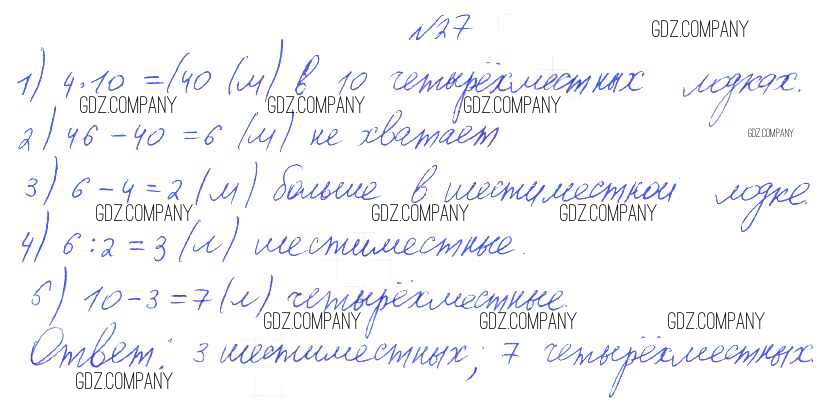 №27
GDZ.COMPANY
1) 4·10 = (40 (м) в 10 четырёхместных лодках.
GDZ.COMPANY GDZ.COMPANY GDZ.COMPANY
2) 46 - 40 = 6 (м) не хватает
GDZ.COMPANY
3) 6 - 4 = 2 (м) больше в шестиместной лодке.
GDZ.COMPANY GDZ.COMPANY GDZ.COMPANY
4) 6 : 2 = 3 (л) шестиместные.
5) 10 - 3 = 7 (л) четырёхместные.
GDZ.COMPANY GDZ.COMPANY GDZ.COMPANY
Ответ: 3 шестиместных; 7 четырёхместных.
GDZ.COMPANY